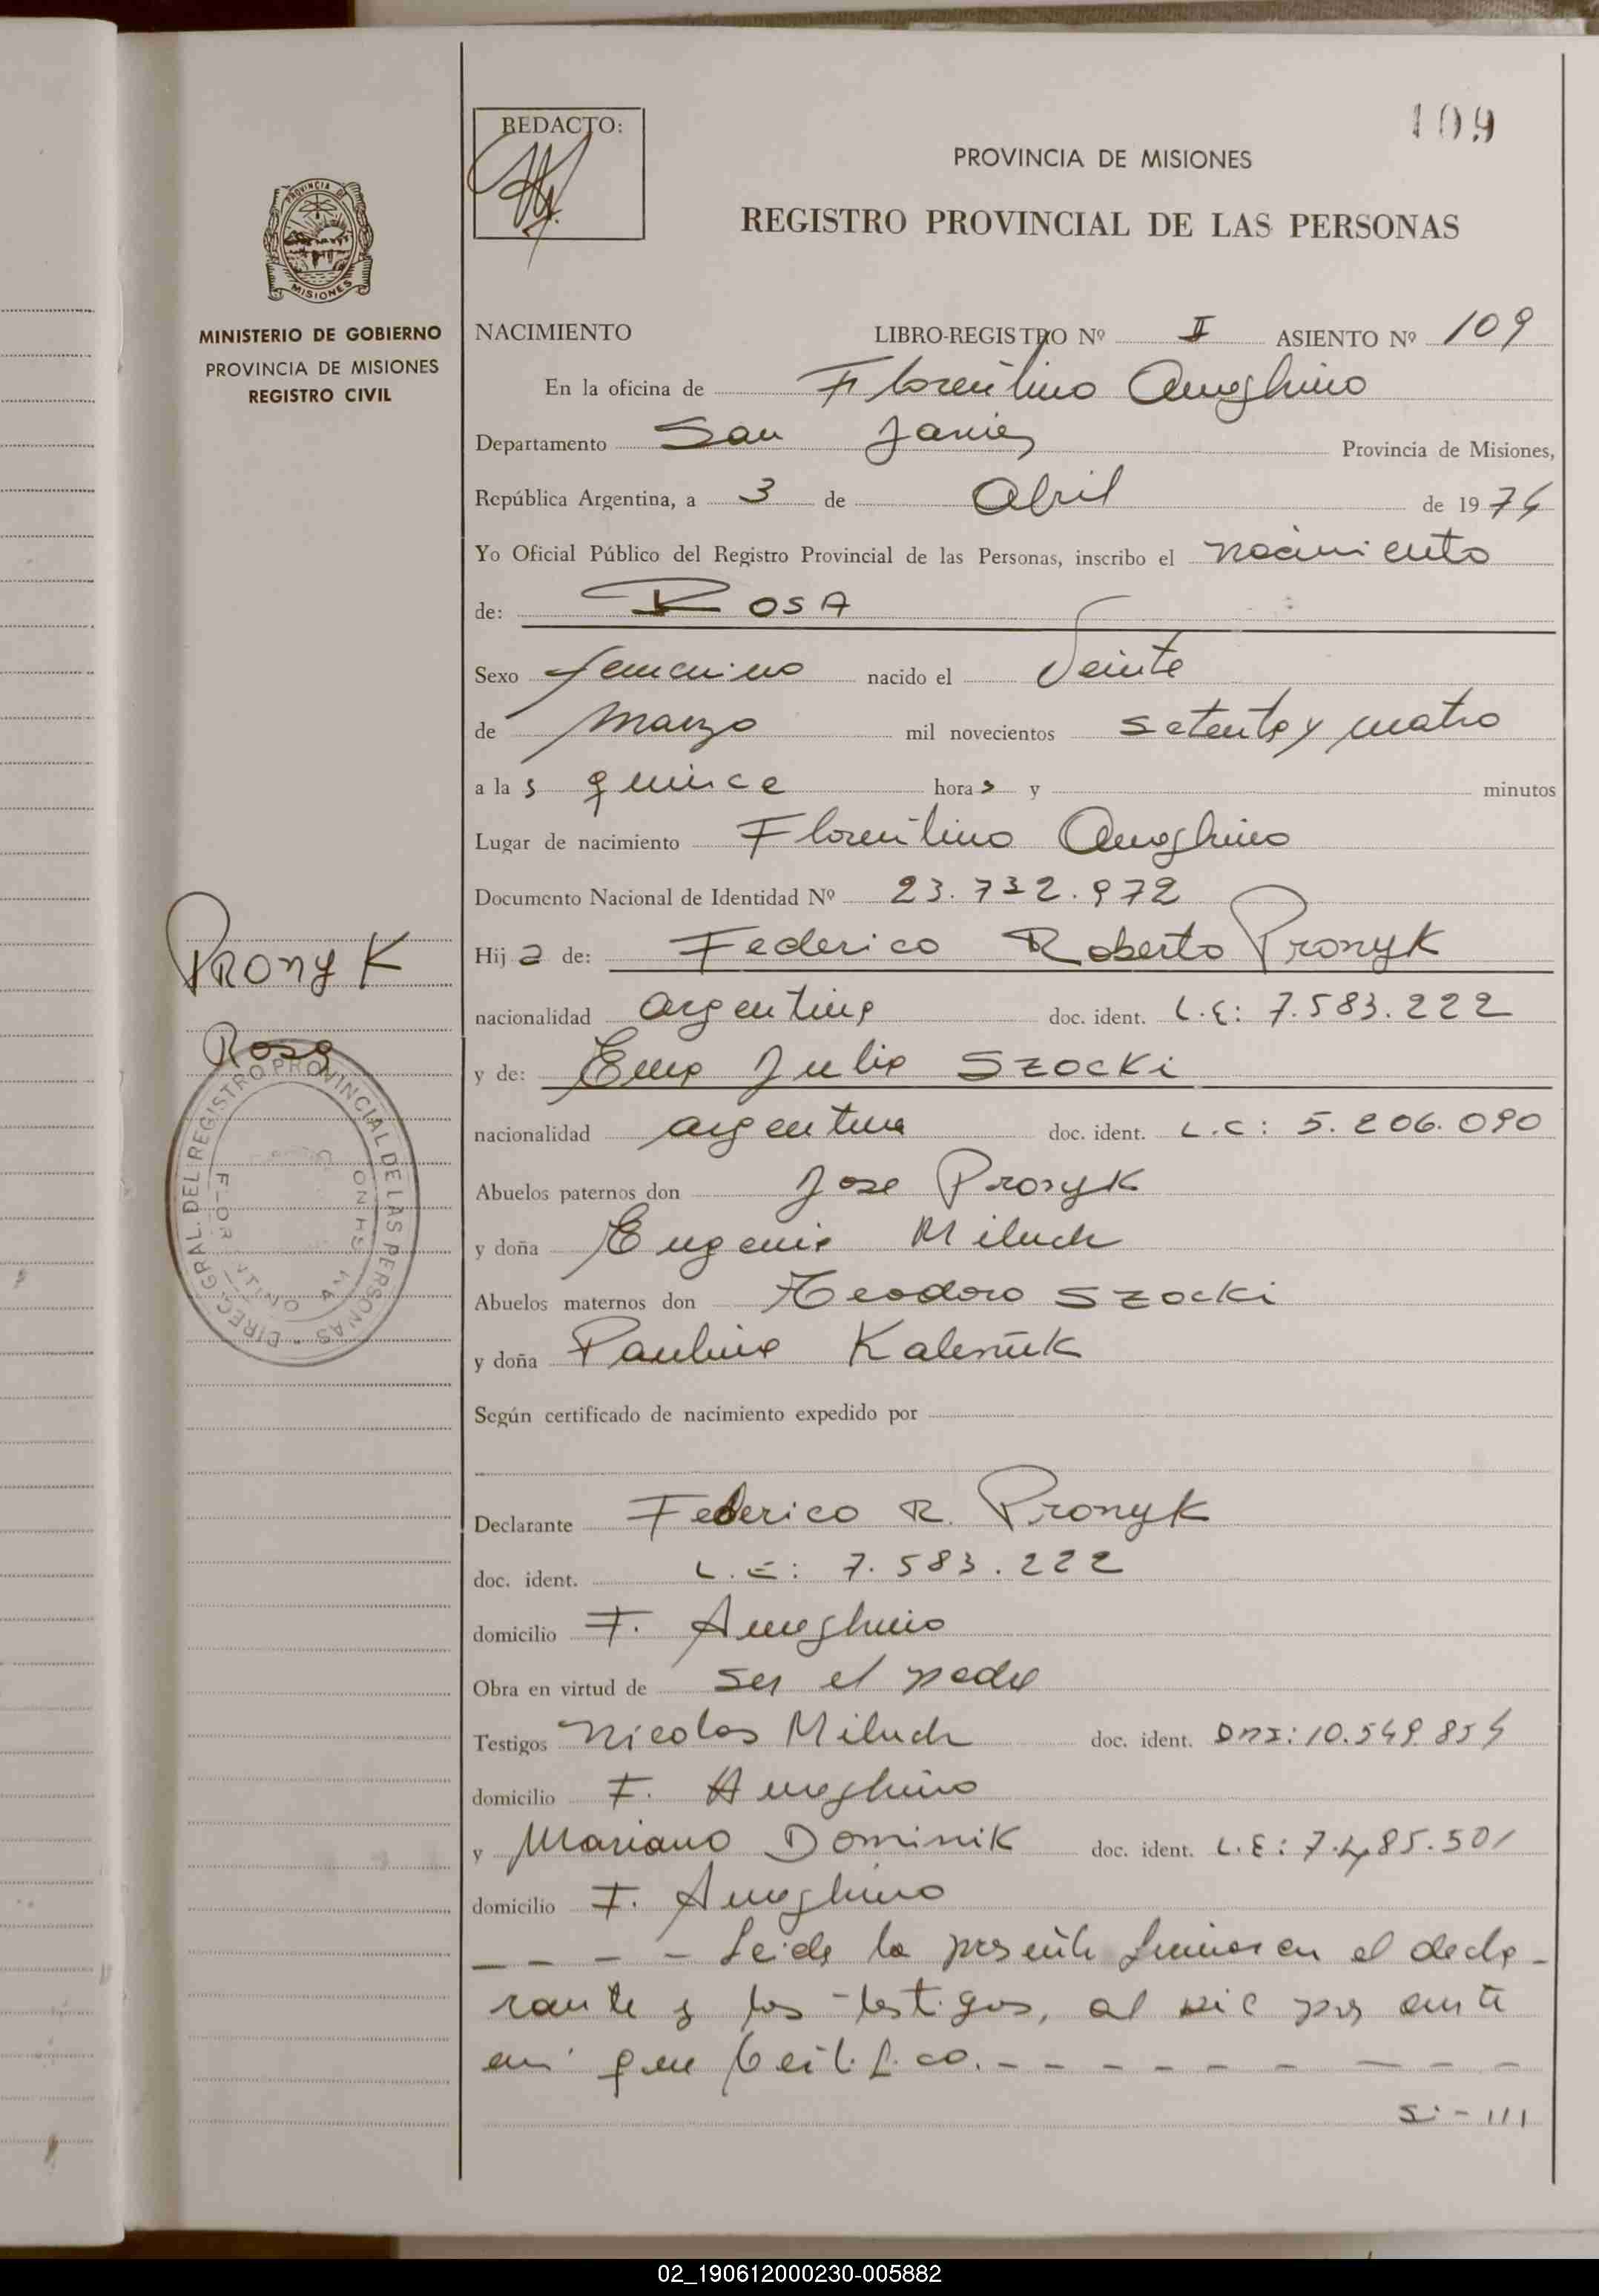 109
REDACTO:
PROVINCIA DE MISIONES
REGISTRO PROVINCIAL DE LAS PERSONAS
PROVINCIA DE
MISIONES
MINISTERIO DE GOBIERNO
PROVINCIA DE MISIONES
REGISTRO CIVIL
NACIMIENTO LIBRO-REGISTRO Nº II ASIENTO Nº 109
En la oficina de Florentino Ameghino
Departamento San Javier Provincia de Misiones,
República Argentina, a 3 de Abril de 1974
Yo Oficial Público del Registro Provincial de las Personas, inscribo el nacimiento
de: ROSA
Sexo femenino nacido el Veinte
de marzo mil novecientos setenta y cuatro
a las quince horas y minutos
Lugar de nacimiento Florentino Ameghino
Documento Nacional de Identidad Nº 23.732.972
Hija de: Federico Roberto Pronyk
nacionalidad argentina doc. ident. L.E: 7.583.222
y de: Ema Julia Szocki
nacionalidad argentina doc. ident. L.C: 5.206.090
Abuelos paternos don Jose Pronyk
y doña Eugenia Miluch
Abuelos maternos don Teodoro Szocki
y doña Paulina Kaleniuk
Según certificado de nacimiento expedido por
Declarante Federico R. Pronyk
doc. ident. L.E: 7.583.222
domicilio F. Ameghino
Obra en virtud de ser el padre
Testigos Nicolas Miluch doc. ident. DNI: 10.549.854
domicilio F. Ameghino
y Mariano Dominik doc. ident. L.E: 7.485.501
domicilio F. Ameghino
- - - - Leida la presente firman el decla-
rante y los testigos, al pie por ante
mi que Certifico. - - - - - - - - -
Si - ///
PRONYK
Rosa
DIREC. GRAL. DEL REGISTRO PROVINCIAL DE LAS PERSONAS
FLORENTINO AMEGHINO
02_190612000230-005882